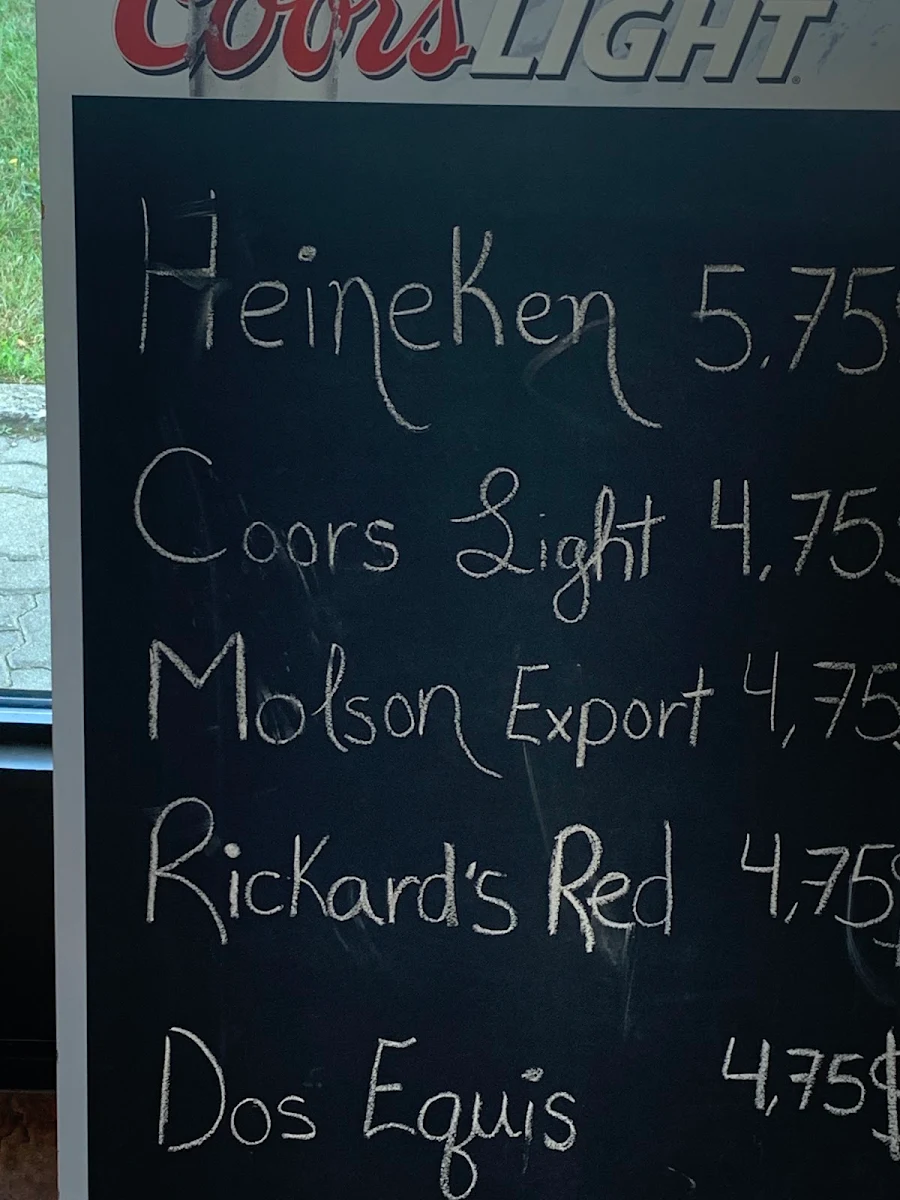 Coors LIGHT
Heineken 5,75$
Coors Light 4,75$
Molson Export 4,75$
Rickard's Red 4,75$
Dos Equis 4,75$